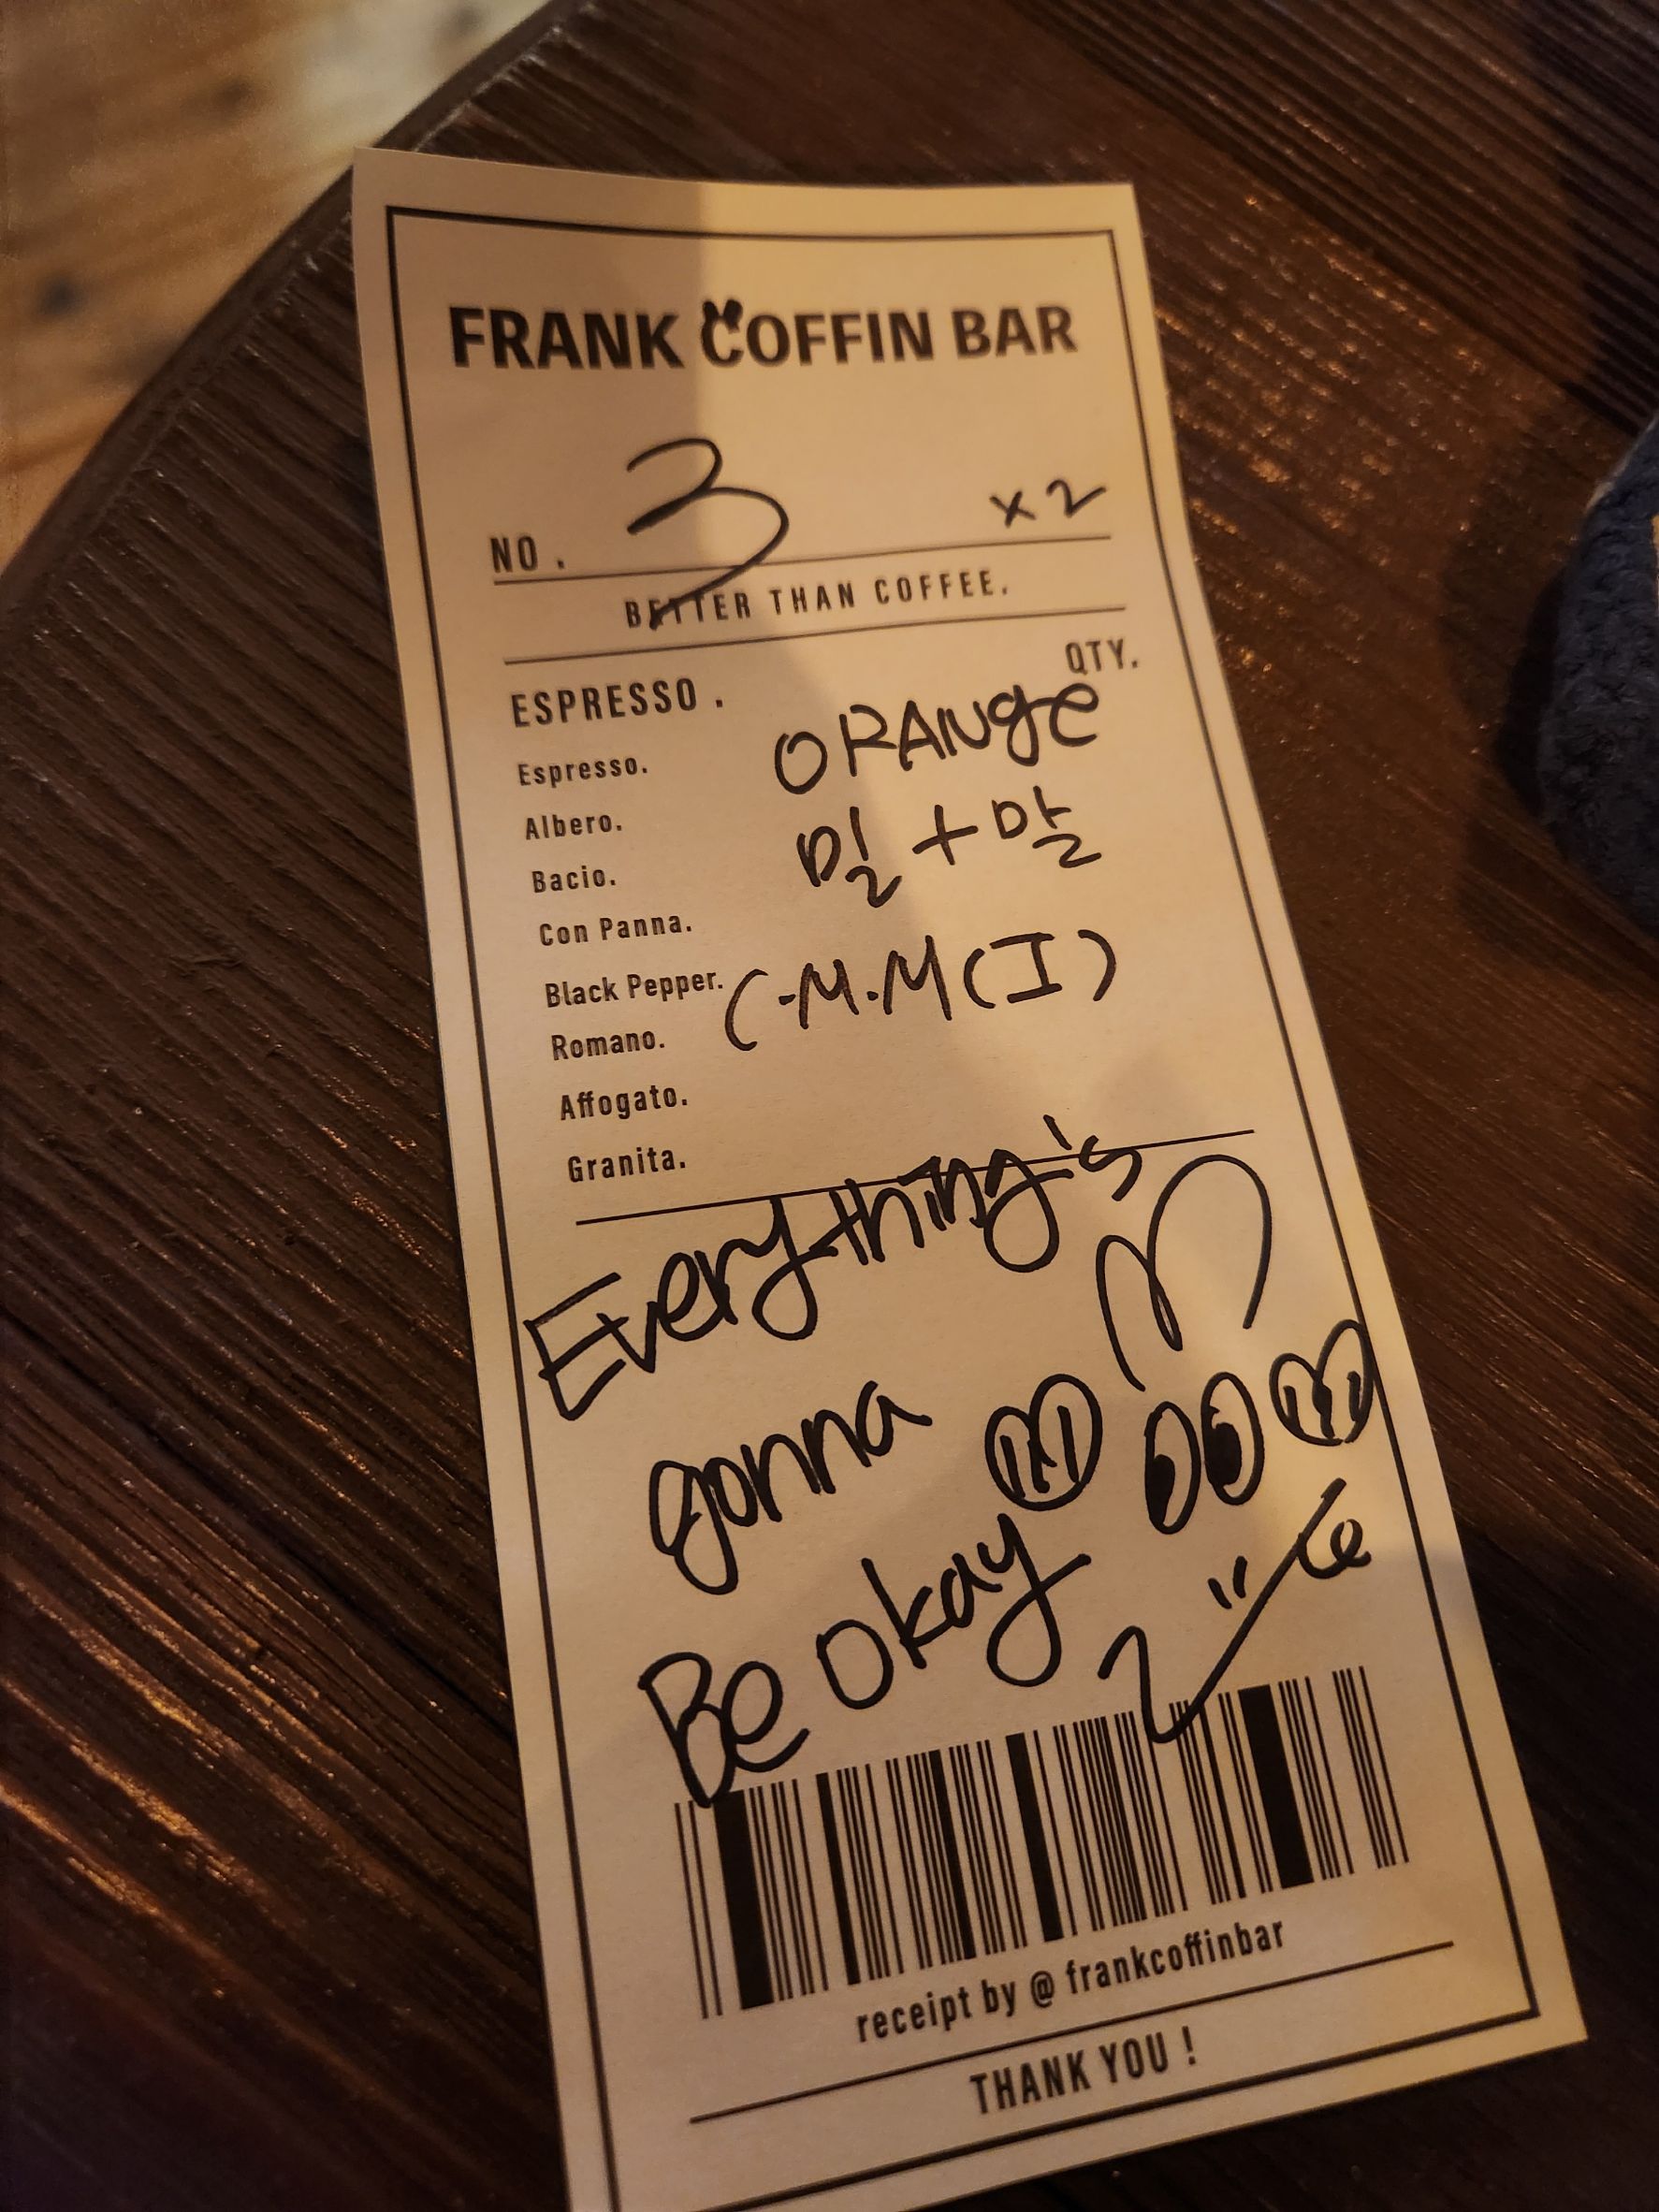 FRANK COFFIN BAR
NO. 3 x2
BETTER THAN COFFEE.
QTY.
ESPRESSO.
ORANge
Espresso.
Albero.
밀+말
Bacio.
Con Panna.
Black Pepper. C.M.M(I)
Romano.
Affogato.
Granita.
Everything's
gonna
Be okay
receipt by @ frankcoffinbar
THANK YOU !